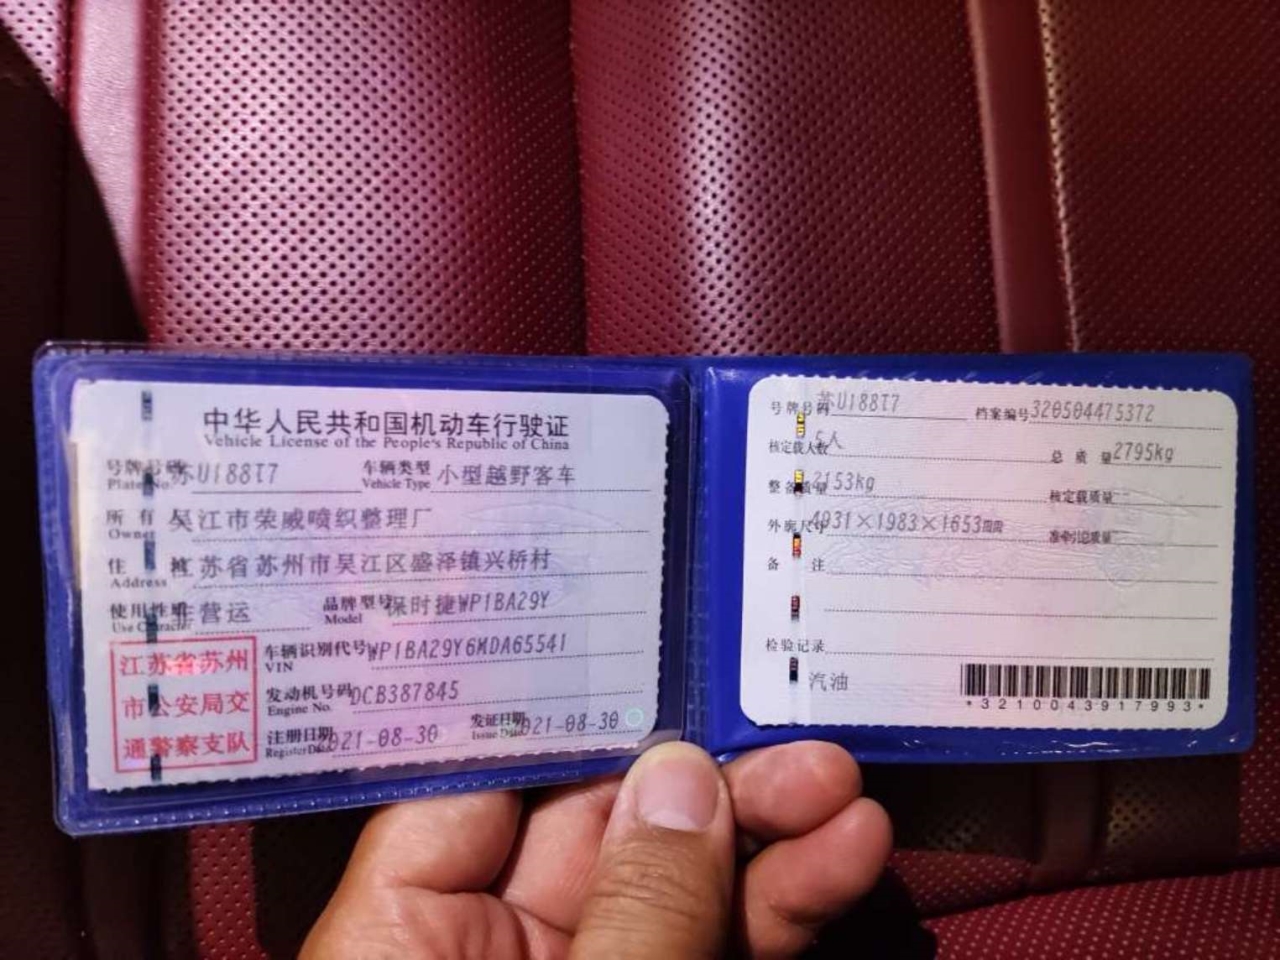 中华人民共和国机动车行驶证
Vehicle License of the People's Republic of China
号牌号码 苏U188T7 车辆类型 小型越野客车
Plate No. Vehicle Type
所有人 吴江市荣威喷织整理厂
Owner
住 址 江苏省苏州市吴江区盛泽镇兴桥村
Address
使用性质 非营运 品牌型号 保时捷WP1BA29Y
Use Character Model
江苏省苏州
市公安局交
通警察支队
车辆识别代号 WP1BA29Y6MDA65541
VIN
发动机号码 DCB387845
Engine No.
注册日期 2021-08-30 发证日期 2021-08-30
Register Date Issue Date
号牌号码 苏U188T7 档案编号 320504475372
核定载人数 5人 总质量 2795kg
整备质量 2153kg 核定载质量 --
外廓尺寸 4931×1983×1653mm 准牵引总质量 --
备 注
检验记录
汽油
*3210043917993*